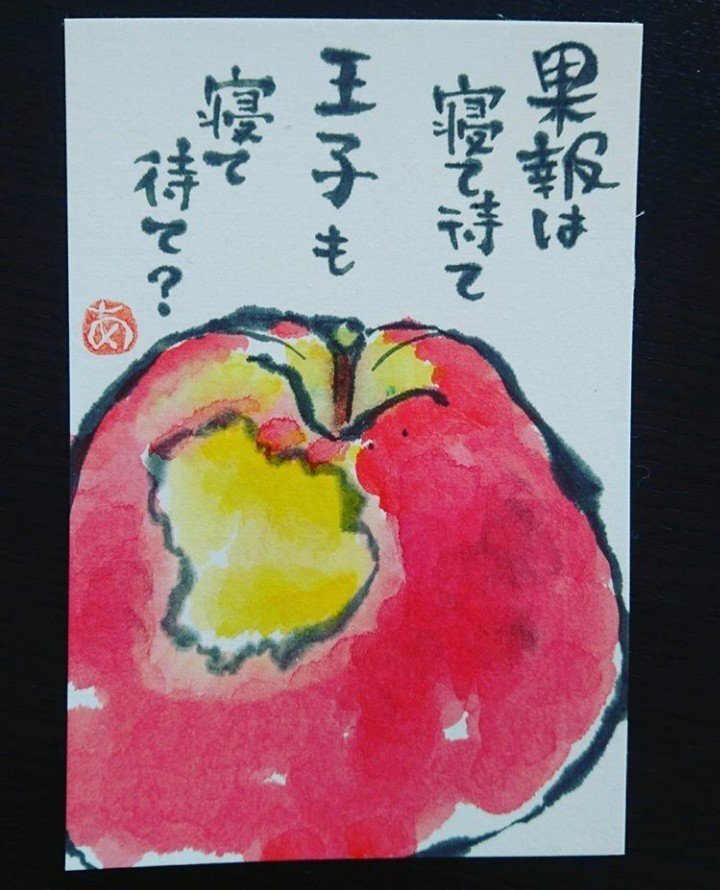 果報は
寝て待て
王子も
寝て
待て?
あ